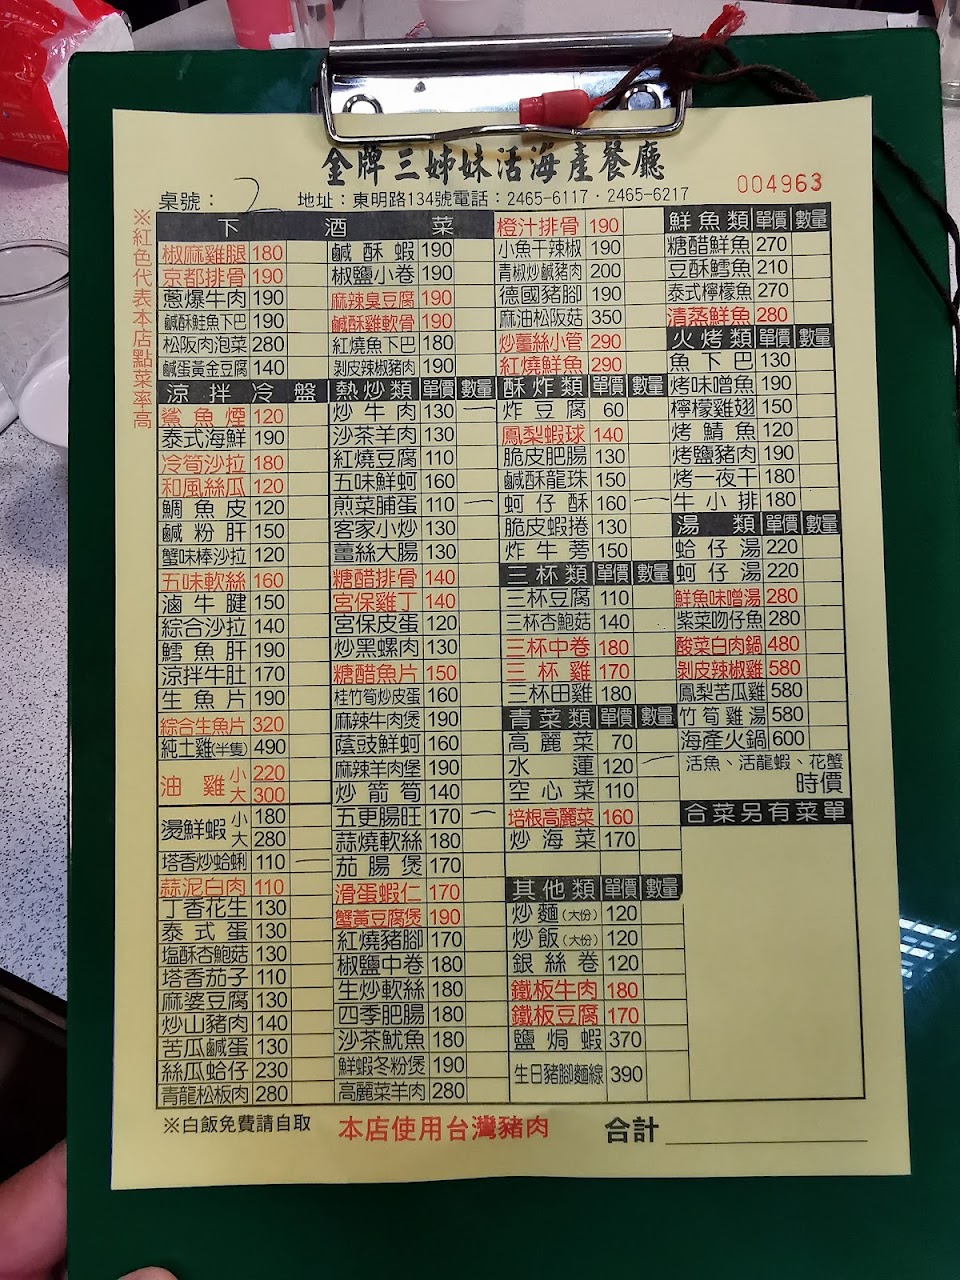 金牌三姊妹活海產餐廳
004963
桌號：2
地址：東明路134號電話：2465-6117．2465-6217
※紅色代表本店點菜率高
下酒菜
椒麻雞腿 180
京都排骨 190
蔥爆牛肉 190
鹹酥鮭魚下巴 190
松阪肉泡菜 280
鹹蛋黃金豆腐 140
鹹酥蝦 190
椒鹽小卷 190
麻辣臭豆腐 190
鹹酥雞軟骨 190
紅燒魚下巴 180
剝皮辣椒豬肉 190
橙汁排骨 190
小魚干辣椒 190
青椒炒鹹豬肉 200
德國豬腳 190
麻油松阪菇 350
炒薑絲小管 290
紅燒鮮魚 290
涼拌冷盤
鯊魚煙 120
泰式海鮮 190
冷筍沙拉 180
和風絲瓜 120
鯛魚皮 120
鹹粉肝 150
蟹味棒沙拉 120
五味軟絲 160
滷牛腱 150
綜合沙拉 140
鱈魚肝 190
涼拌牛肚 170
生魚片 190
綜合生魚片 320
純土雞(半隻) 490
油雞 小 220
大 300
燙鮮蝦 小 180
大 280
塔香炒蛤蜊 110 一
蒜泥白肉 110
丁香花生 130
泰式蛋 130
塩酥杏鮑菇 130
塔香茄子 110
麻婆豆腐 130
炒山豬肉 140
苦瓜鹹蛋 130
絲瓜蛤仔 230
青龍松板肉 280
熱炒類 單價 數量
炒牛肉 130 一
沙茶羊肉 130
紅燒豆腐 110
五味鮮蚵 160
煎菜脯蛋 110 一
客家小炒 130
薑絲大腸 130
糖醋排骨 140
宮保雞丁 140
宮保皮蛋 120
炒黑螺肉 130
糖醋魚片 150
桂竹筍炒皮蛋 160
麻辣牛肉煲 190
蔭豉鮮蚵 160
麻辣羊肉堡 190
炒箭筍 140
五更腸旺 170 一
蒜燒軟絲 180
茄腸煲 170
滑蛋蝦仁 170
蟹黃豆腐煲 190
紅燒豬腳 170
椒鹽中卷 180
生炒軟絲 180
四季肥腸 180
沙茶魷魚 180
鮮蝦冬粉煲 190
高麗菜羊肉 280
酥炸類 單價 數量
炸豆腐 60
鳳梨蝦球 140
脆皮肥腸 130
鹹酥龍珠 150
蚵仔酥 160 一
脆皮蝦捲 130
炸牛蒡 150
三杯類 單價 數量
三杯豆腐 110
三杯杏鮑菇 140
三杯中卷 180
三杯雞 170
三杯田雞 180
青菜類 單價 數量
高麗菜 70
水蓮 120 一
空心菜 110
培根高麗菜 160
炒海菜 170
其他類 單價 數量
炒麵(大份) 120
炒飯(大份) 120
銀絲卷 120
鐵板牛肉 180
鐵板豆腐 170
鹽焗蝦 370
生日豬腳麵線 390
鮮魚類 單價 數量
糖醋鮮魚 270
豆酥鱈魚 210
泰式檸檬魚 270
清蒸鮮魚 280
火烤類 單價 數量
魚下巴 130
烤味噌魚 190
檸檬雞翅 150
烤鯖魚 120
烤鹽豬肉 190
烤一夜干 180
牛小排 180
湯類 單價 數量
蛤仔湯 220
蚵仔湯 220
鮮魚味噌湯 280
紫菜吻仔魚 280
酸菜白肉鍋 480
剝皮辣椒雞 580
鳳梨苦瓜雞 580
竹筍雞湯 580
海產火鍋 600
活魚、活龍蝦、花蟹
時價
合菜另有菜單
※白飯免費請自取
本店使用台灣豬肉
合計